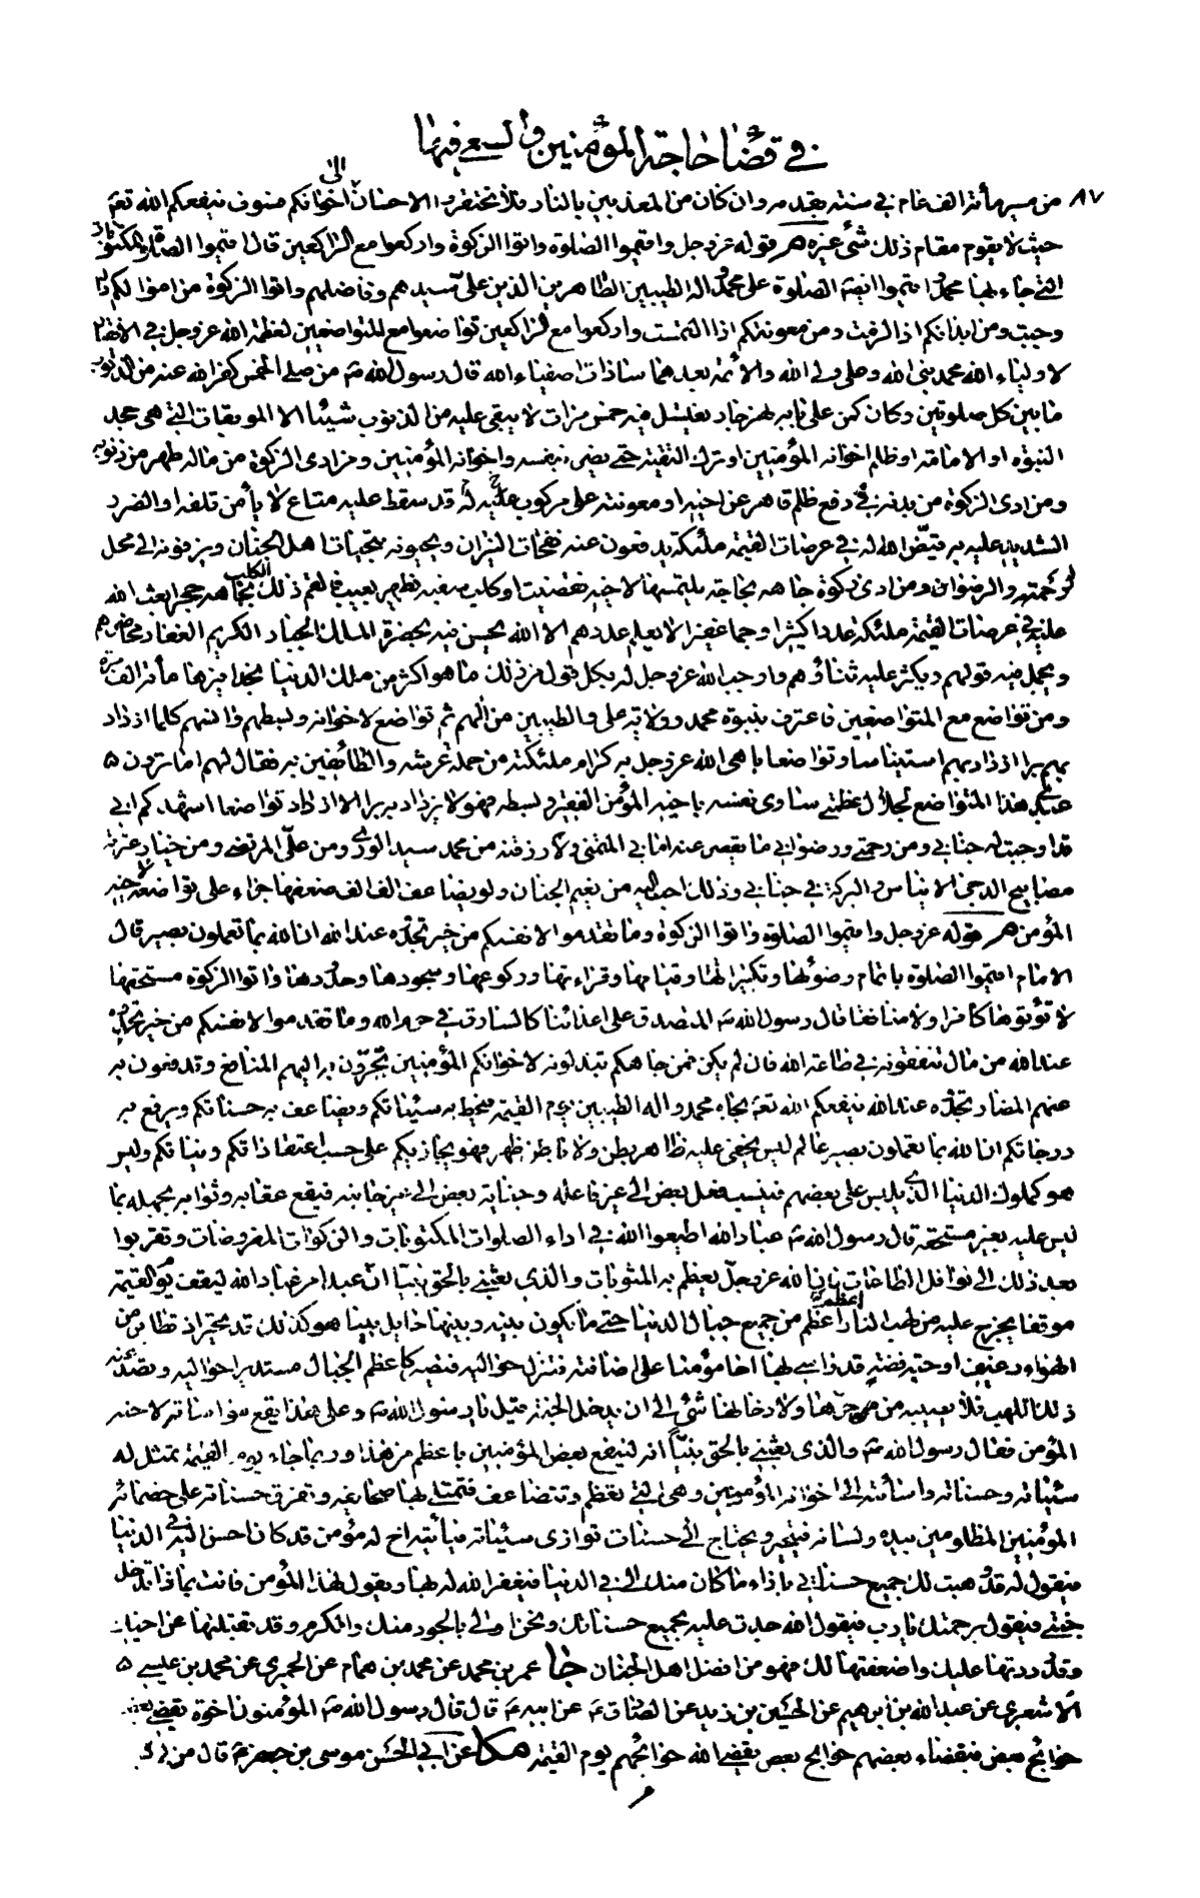 في قضاء حاجة المؤمنين والسعي فيها
٨٧ من مسيرة مأة الف عام في سنة بقدمه وان كان من المعذبين بالنار فلا تحتقروا الاحسان الى اخوانكم فسوف ينفعكم الله تعم
حيث لا يقوم مقام ذلك شئ غيره هر قوله عز وجل واقيموا الصلوة واتوا الزكوة واركعوا مع الراكعين قال اقيموا الصلوة المكتوبات
التي جاء بها محمد واقيموا ايضا الصلوة على محمد واله الطيبين الطاهرين الذين على سيدهم وفاضلهم واتوا الزكوة من اموالكم اذا
وجبت ومن ابدانكم اذا لزمت ومن معونتكم اذا التمست واركعوا مع الراكعين تواضعوا مع المتواضعين لعظمة الله عز وجل في الانقياد
لاولياء الله محمد نبي الله وعلي ولي الله والائمة بعدهما سادات اصفياء الله قال رسول الله صم من صلى الخمس كفر الله عنه من الذنوب
ما بين كل صلوتين وكان كمن على بابه نهر جار يغتسل فيه خمس مرات لا يبقى عليه من الذنوب شيئا الا الموبقات التي هي جحد
النبوة او الامامة او ظلم اخوانه المؤمنين او ترك التقية حتى يضر بنفسه واخوانه المؤمنين ومن ادى الزكوة من ماله طهر من ذنوبه
ومن ادى الزكوة من بدنه في دفع ظلم قاهر عن اخيه او معونته على مركوب له قد سقط عليه متاع لا يأمن تلفه او الضرر
الشديد عليه به قيض الله له في عرصات القيمة ملئكة يدفعون عنه نفخات النيران ويحيونه بتحيات اهل الجنان ويزفونه الى محل
الرحمة والرضوان ومن ادى زكوة جاهه بحاجة يلتمسها لاخيه فقضيت او كلب سفيه يظهر بعيبه فالقم ذلك الكلب بجاهه حجرا بعث الله
عليه في عرصات القيمة ملئكة عددا كثيرا وجما غفيرا لا يعلم عددهم الا الله يحسن فيه بحضرة الملك الجبار الكريم الغفار محاضرهم
ويجمل فيه قولهم ويكثر عليه ثناؤهم واوجب الله عز وجل له بكل قول من ذلك ما هو اكثر من ملك الدنيا بحذافيرها مأة الف مرة
ومن تواضع مع المتواضعين فاعترف بنبوة محمد وولاية علي والطيبين من الهم ثم تواضع لاخوانه وبسطهم وانسهم كلما ازداد
بهم برا ازداد بهم استيناسا وتواضعا باهى الله عز وجل به كرام ملئكته من حملة عرشه والطائفين به فقال لهم اما ترون
عبدي هذا المتواضع لجلال عظمتي ساوى نفسه باخيه المؤمن الفقير وبسطه فهو لا يزداد به برا الا ازداد تواضعا اشهدكم اني
قد اوجبت له جناني ومن رحمتي ورضواني ما يقصر عنه اماني المتمني ولارزقنه من محمد سيد الورى ومن علي المرتضى ومن خيار عترته
مصابيح الدجى الايناس والبركة في جناني وذلك احب اليه من نعيم الجنان ولو يضاعف الف الف ضعفها جزاء على تواضعه لاخيه
المؤمن هر قوله عز وجل واقيموا الصلوة واتوا الزكوة وما تقدموا لانفسكم من خير تجدوه عند الله ان الله بما تعملون بصير قال
الامام اقيموا الصلوة باتمام وضوئها وتكبيراتها وقيامها وقراءتها وركوعها وسجودها وحدودها واتوا الزكوة مستحقها
لا تؤتوها كافرا ولا منافقا قال رسول الله صم المتصدق على اعدائنا كالسارق في حرم الله وما تقدموا لانفسكم من خير تجدوه
عند الله من مال تنفقونه في طاعة الله فان لم يكن فمن جاهكم تبذلونه لاخوانكم المؤمنين تجرون به اليهم المنافع وتدفعون به
عنهم المضار تجدوه عند الله ينفعكم الله تعم بجاه محمد واله الطيبين يوم القيمة فيحط به سيئاتكم ويضاعف به حسناتكم ويرفع به
درجاتكم ان الله بما تعملون بصير عالم ليس يخفى عليه ظاهر بطن ولا باطن ظهر فهو يجازيكم على حسب اعتقاداتكم ونياتكم وليس
هو كملوك الدنيا الذي يلبس على بعضهم فينسب فعل بعض الى غير فاعله وجناية بعض الى غير جانيه فيقع عقابه وثوابه بجهله بما
لبس عليه بغير مستحقه قال رسول الله صم عباد الله اطيعوا الله في اداء الصلوات المكتوبات والزكوات المفروضات وتقربوا
بعد ذلك الى نوافل الطاعات فان الله عز وجل يعظم به المثوبات والذي بعثني بالحق نبيا ان عبدا من عباد الله ليقف يوم القيمة
موقفا يخرج عليه من لهب النار اعظم من جميع جبال الدنيا حتى ما يكون بينه وبينها حايل بينا هو كذلك قد تحير اذ تطاير من
الهواء رغيف او حبة فضة قد واسى بها اخا مؤمنا على اضافته فتنزل حواليه فتصير كاعظم الجبال مستديرا حواليه وتصد عنه
ذلك اللهب فلا يصيبه من حرها ولا دخانها شئ الى ان يدخل الجنة قيل يا رسول الله صم وعلى هذا يقع مواساته لاخيه
المؤمن فقال رسول الله صم والذي بعثني بالحق نبيا انه لينفع بعض المؤمنين باعظم من هذا وربما جاء يوم القيمة تمثل له
سيئاته وحسناته واساءته الى اخوانه المؤمنين وهي التي تعظم وتتضاعف فتمتلي بها صحايفه وتفرق حسناته على خصمائه
المؤمنين المظلومين بيده ولسانه فيتحير ويحتاج الى حسنات توازى سيئاته فيأتيه اخ له مؤمن قد كان احسن اليه في الدنيا
فيقول له قد وهبت لك جميع حسناتي بازاء ما كان منك الي في الدنيا فيغفر الله له بها ويقول لهذا المؤمن فانت بماذا تدخل
جنتي فيقول برحمتك يا رب فيقول الله جدت عليه بجميع حسناتك ونحن اولى بالجود منك والكرم وقد تقبلتها عن اخيك
وقد رددتها عليك واضعفتها لك فهو من افضل اهل الجنان جا عمر بن محمد عن محمد بن همام عن الحميري عن محمد بن عيسى
الاشعري عن عبد الله بن ابرهيم عن الحسين بن زيد عن الصادق عم عن ابيه عم قال قال رسول الله صم المؤمنون اخوة يقضي بعضهم
حوائج بعض فبقضاء بعضهم حوائج بعض يقضي الله حوائجهم يوم القيمة مكا عن ابي الحسن موسى بن جعفر عم قال من